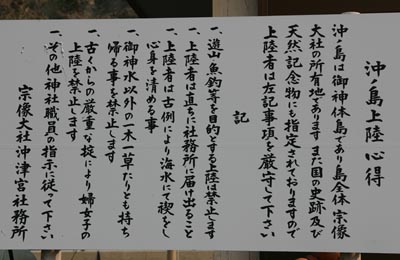 沖ノ島上陸心得
沖ノ島は御神体島であり島全体宗像
大社の所有地であります また国の史跡及び
天然記念物にも指定されておりますので
上陸者は左記事項を厳守して下さい
記
一、遊山魚釣等を目的とする上陸は禁止します
一、上陸者は直ちに社務所に届け出ること
一、上陸者は古例により海水にて禊をし
心身を清める事
一、御神水以外の一木一草たりとも持ち
帰る事を禁止します
一、古くからの厳重な掟により婦女子の
上陸を禁止します
一、その他神社職員の指示に従って下さい
宗像大社沖津宮社務所